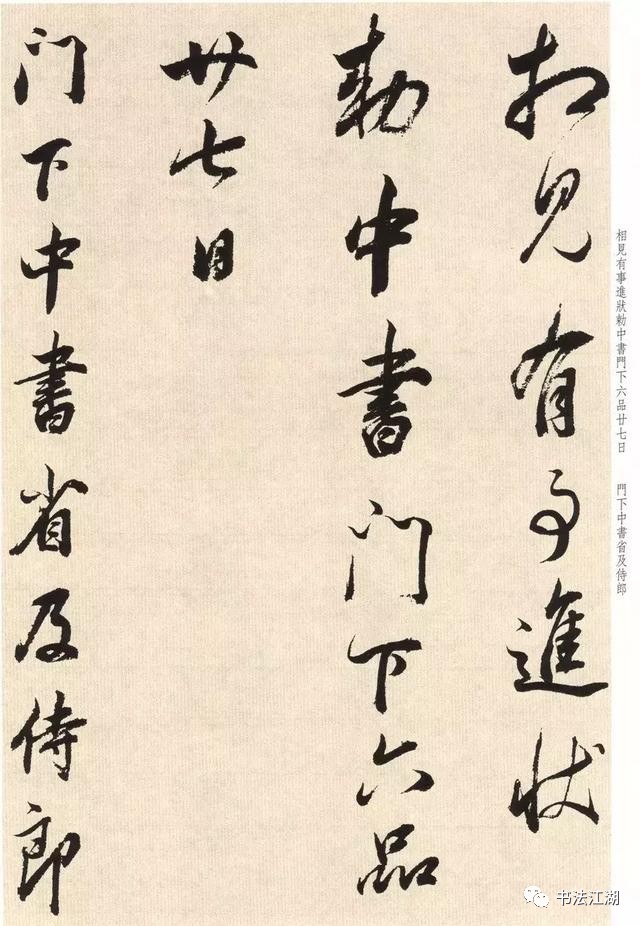 相見有事進狀
勅中書門下六品
廿七日
門下中書省及侍郎
相見有事進狀勅中書門下六品廿七日 門下中書省及侍郎
书法江湖